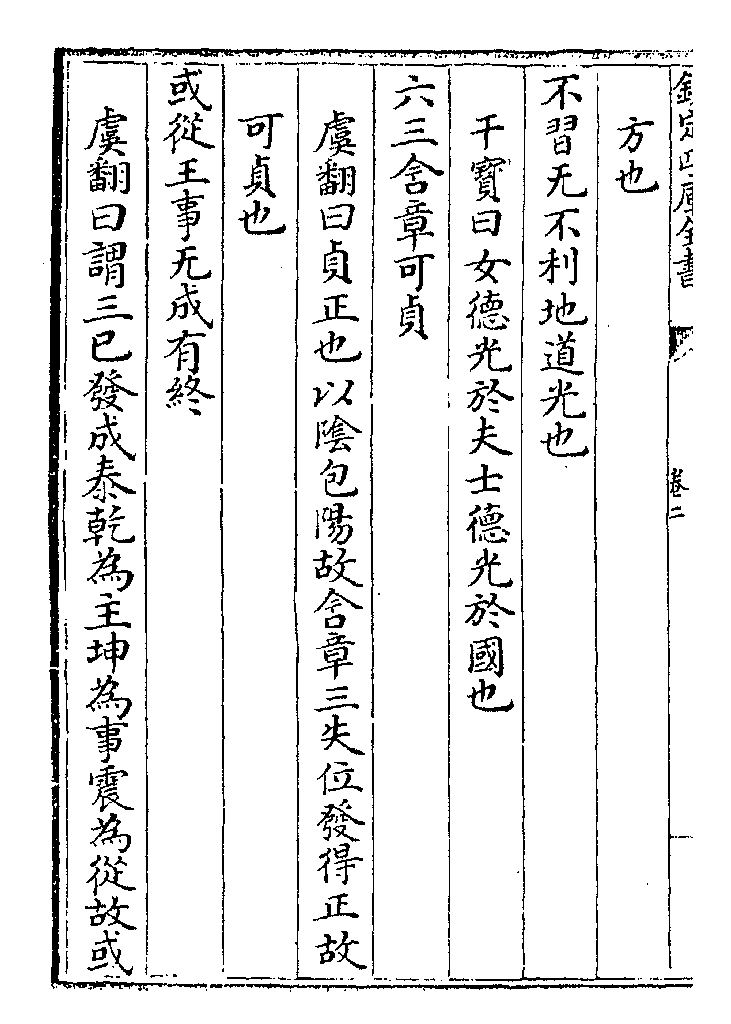 欽定四庫全書
卷二
方也
不習无不利地道光也
干寶曰女德光於夫士德光於國也
六三含章可貞
虞翻曰貞正也以陰包陽故含章三失位發得正故
可貞也
或從王事无成有終
虞翻曰謂三已發成泰乾為主坤為事震為從故或